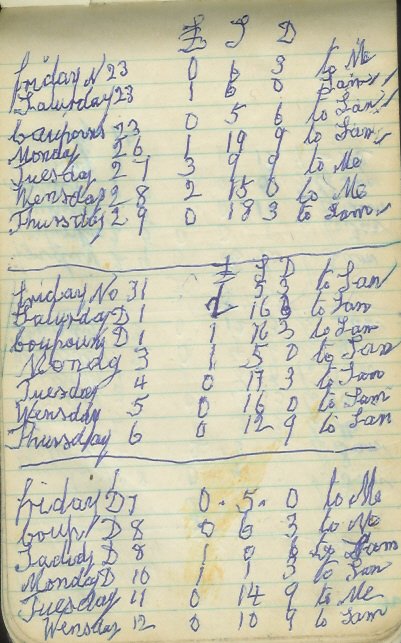 £ S D
Friday N 23 0 6 3 to Me
Saturday 23 1 6 0 Sam
Coupons 23 0 5 6 to Sam
Monday 26 1 19 9 to Sam
Tuesday 27 3 9 9 to Me
Wensday 28 2 15 0 to Me
Thursday 29 0 18 3 to Sam
£ S D
Friday No 31 1 5 3 to Sam
Saturday D 1 1 16 to Sam
Coupons D 1 1 3 to Sam
Mondg 3 1 5 0 to Sam
Tuesday 4 0 17 3 to Sam
Wensday 5 0 16 0 to Sam
Thursday 6 0 12 9 to Sam
Friday D 7 0. 5. 0 to Me
Coup D 8 0 6 3 to Me
D 8 1 0 6 to Sam
Monday D 10 1 1 3 to Sam
Tuesday 11 0 14 9 to Me
Wensday 12 0 10 9 to Sam